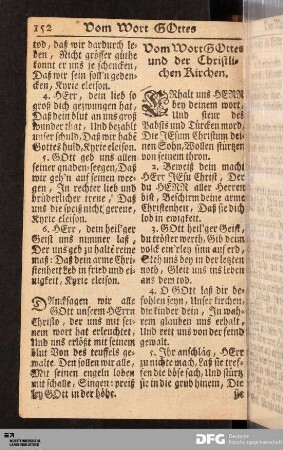 152 Vom Wort GOttes
tod, daß wir dardurch le-
ben, Nicht grösser güthe
konnt er uns je schencken,
Daß wir sein soll'n geden-
cken, Kyrie eleison.
4. HErr, dein lieb so
groß dich gezwungen hat,
Daß dein blut an uns groß
wunder that, Und bezahlt
unser schuld, Daß wir habē
Gottes huld, Kyrie eleison.
5. GOtt geb uns allen
seiner gnaden-seegen, Daß
wir geh'n auf seinen we-
gen, In rechter lieb und
brüderlicher treue, Daß
uns die speiß nicht gereue,
Kyrie eleison.
6. HErr, dein heil'ger
Geist uns nimmer laß,
Der uns geb zu halte reine
maß: Daß dein arme Chri-
stenheit Leb in fried und ei-
nigkeit, Kyrie eleison.
DAncksagen wir alle
GOtt unserm HErrn
Christo, der uns mit sei-
nem wort hat erleuchtet,
Und uns erlößt mit seinem
blut Von des teuffels ge-
walte. Den sollen wir alle,
Mit seinen engeln loben
mit schalle, Singen: preiß
sey GOtt in der höhe.
Vom Wort GOttes
und der Christli-
chen Kirchen.
ERhalt uns HERR
bey deinem wort,
Und steur des
Pabsts und Türcken mord,
Die JEsum Christum dei-
nen Sohn, Wollen stürtzen
von seinem thron.
2. Beweiß dein macht
HErr JEsu Christ, Der
du HERR aller Herren
bist, Beschirm deine arme
Christenheit, Daß sie dich
lob in ewigkeit.
3. GOtt heil'ger Geist,
du tröster werth, Gib deim
volck ein'rley sinn auf erd,
Steh uns bey in der letzten
noth, Gleit uns ins leben
aus dem tod.
4. O GOtt laß dir be-
fohlen seyn, Unser kirchen,
die kinder dein, In wah-
rem glauben uns erhalt,
Und rett uns von der feind
gewalt.
5. Ihr anschläg, HErr
zu nichte mach, Laß sie tref-
fen die böse sach, Und stürtz
sie in die grub hinein, Die
sie
DFG Deutsche
Forschungsgemeinschaft